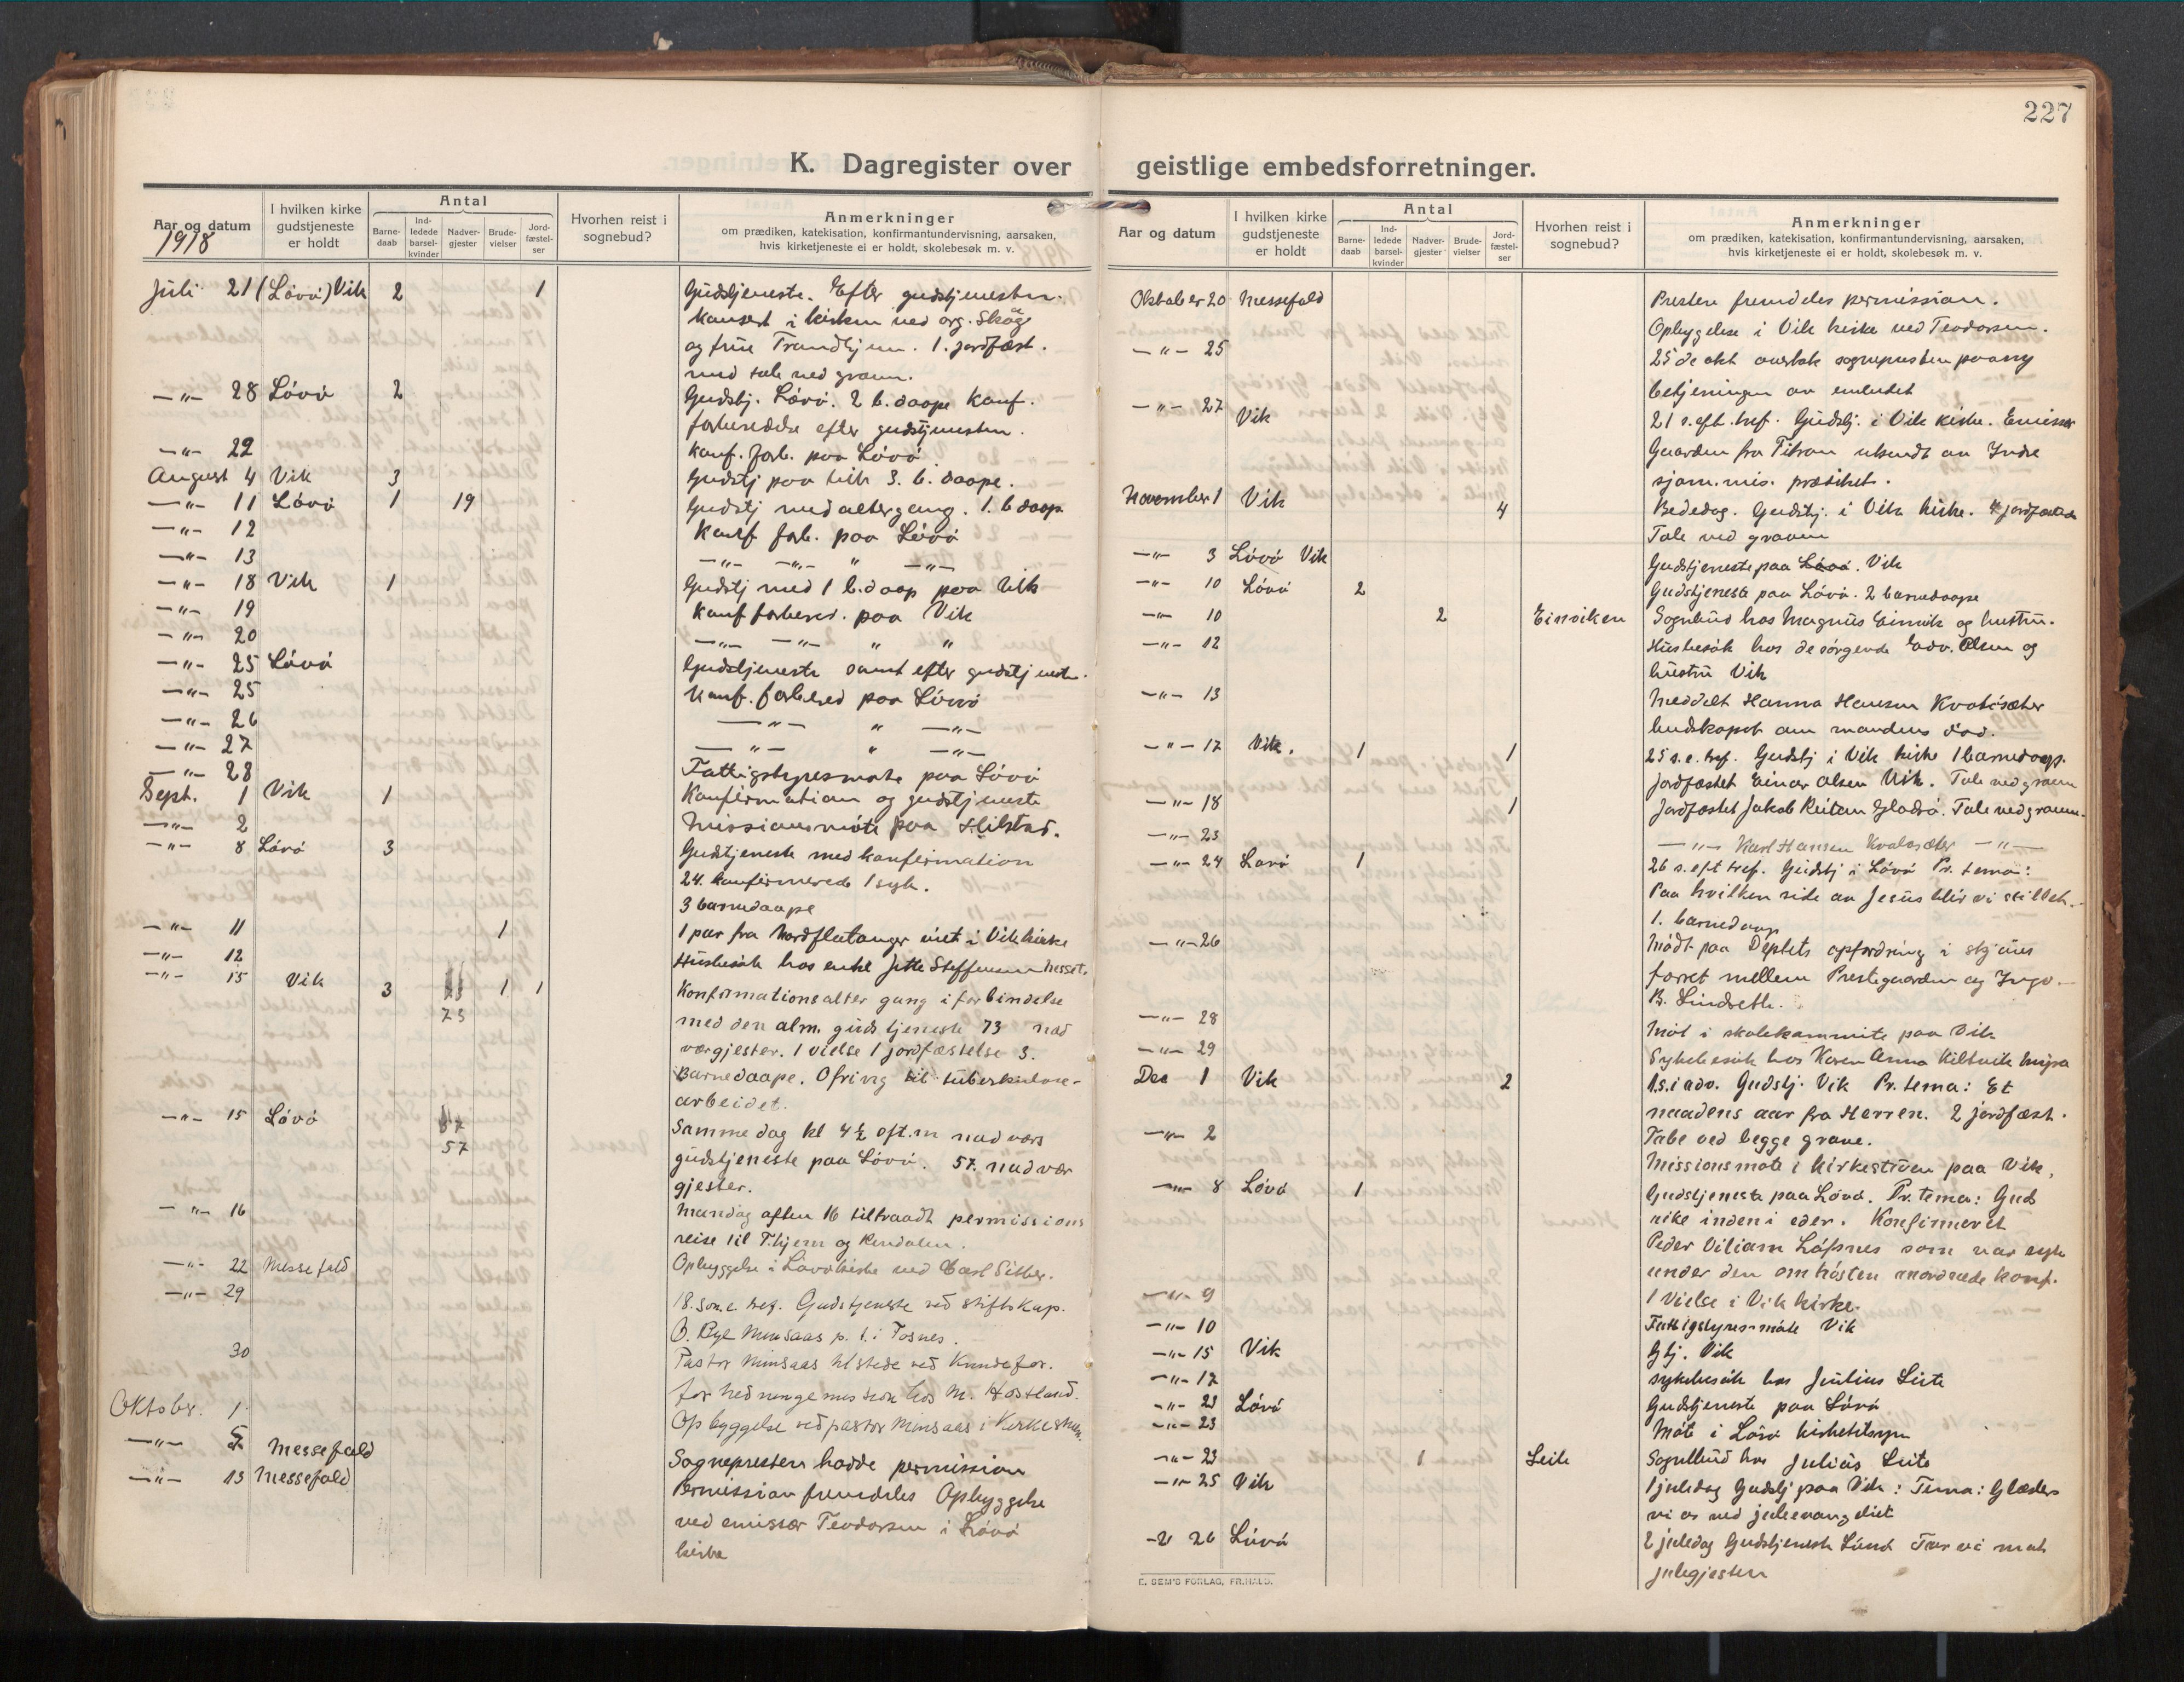 227
K. Dagregister over geistlige embedsforretninger.
Aar og datum
1918
I hvilken kirke gudstjeneste er holdt
Antal
Barnedaab
Indledede barselkvinder
Nadvergjester
Brudevielser
Jordfæstelser
Hvorhen reist i sognebud?
Anmerkninger
om prædiken, katekisation, konfirmantundervisning, aarsaken,
hvis kirketjeneste ei er holdt, skolebesøk m. v.
Juli 21 (Lövö) Vik 2 1 Gudstjeneste. Efter gudstjenesten
konsert i kirken ved org. Skage
og frue Trondhjem. 1. jordfæst.
med tale ved graven.
—"— 28 Lövö 2 Gudstj. Lövö. 2 b. daape Konf.
forberedelse efter gudstjenesten.
—"— 29 Konf. forb. paa Lövö
August 4 Vik 3 Gudstj paa Vik 3. b. daape.
—"— 11 Lövö 1 19 Gudstj med altergang. 1. b daap
—"— 12 Konf forb. paa Lövö
—"— 13 —"— —"— " —"—
—"— 18 Vik 1 Gudstj med 1 b. daap paa Vik
—"— 19 Konf forbered. paa Vik
—"— 20 —"— —"— " "
—"— 25 Lövö Gudstjeneste samt efter gudstjenesten
—"— 25 Konf. forbered paa Lövö
—"— 26 —"— " —"—
—"— 27 —"— " —"—
—"— 28 Fattigstyresmøte paa Lövö
Sept. 1 Vik 1 Konfirmation og gudstjeneste
—"— 2 Missionsmöte paa Hilstad.
—"— 8 Lövö 3 Gudstjeneste med konfirmation
24. konfirmerede 1 syk.
3 barnedaape
—"— 11 1 1 par fra Nordflatanger viet i Vik kirke
—"— 12 Husbesök hos enke Jette Steffensen Nesset.
—"— 15 Vik 3 73 1 1 Konfirmationsaltergang i forbindelse
med den alm. gudstjeneste 73 nad
værgjester. 1 vielse 1 jordfæstelse 3.
Barnedaape. Ofring til tuberkulose-
arbeidet.
—"— 15 Lövö 57 Samme dag kl 4½ eft.m nadværs
gudstjeneste paa Lövö. 57. nadvær
gjester.
—"— 16 Mandag aften 16 tiltraadt permissions
reise til T.hjem og Rindalen.
—"— 22 Messefald Opbyggelse i Lövö kirke ved Carl Sitter.
—"— 29 18. søn. e. tref. Gudstjeneste ved stiftskap.
Minsaas p. t. i Fosnes.
30 Pastor Minsaas tilstede ved Kvindefor.
for hedningemission hos M. Hostland.
Oktobr. 1 Opbyggelse ved pastor Minsaas i Kirkestuen.
—"— 5 Messefald Sognepresten hadde permission
—"— 13 Messefald Permission fremdeles Opbyggelse
ved emissær Teodorsen i Lövö
kirke
Aar og datum
I hvilken kirke gudstjeneste er holdt
Antal
Barnedaab
Indledede barselkvinder
Nadvergjester
Brudevielser
Jordfæstelser
Hvorhen reist i sognebud?
Anmerkninger
om prædiken, katekisation, konfirmantundervisning, aarsaken,
hvis kirketjeneste ei er holdt, skolebesøk m. v.
Oktober 20 Messefald Presten fremdeles permission.
Opbyggelse i Vik kirke ved Teodorsen.
—"— 25 25de okt overtok sognepresten paany
betjeningen av embedet
—"— 27 Vik 21 s. eft. tref. Gudstj. i Vik kirke. Emissær
Gaarden fra Titran utsendt av Indre
sjøm.mis. prædiket.
November 1 Vik 4 Bededag. Gudstj. i Vik kirke. 4 jordfæstede
Tale ved graven
—"— 3 Lövö Vik Gudstjeneste paa Lövö. Vik
—"— 10 Lövö 2 Gudstjeneste paa Lövö. 2 barnedaape
—"— 10 2 Einviken Sognebud hos Magnus Einvik og hustru.
—"— 12 Husbesök hos de sörgende Edv. Olsen og
hustru Vik
—"— 13 Meddelt Hanna Hansen Kvalösæter
budskapet om mandens död.
—"— 17 Vik. 1 1 25 s. e. tref. Gudstj i Vik kirke 1 barnedaap.
Jordfæstet Einar Olsen Vik. Tale ved graven
—"— 18 1 Jordfæstet Jakob Reitan Gladsö. Tale ved graven.
—"— 23 —"— Karl Hansen Kvalosæter —"—
—"— 24 Lövö 1 26 s. eft tref. Gudstj i Lövö Pr. tema:
Paa hvilken side av Jesus blir vi stillet.
1. barnedaap
—"— 26 Mödt paa Deptets opfordring i skjøns
foræt mellem Prestegaarden og Ingv.
B. Lindseth.
—"— 28 Möt i skolekommite paa Vik
—"— 29 Sykebesök hos Karen Anna
Dec 1 Vik 2 1 s. i adv. Gudstj. Vik Pr. tema: Et
naadens aar fra Herren. 2 jordfæst.
Tale ved begge grave.
—"— 2 Missionsmöte i kirkestuen paa Vik.
—"— 8 Lövö 1 Gudstjeneste paa Lövö. Pr. tema: Guds
rike inden i eder. Konfirmeret
Peder Viliam Löfsnes som var syk
under den om hösten anordnede konf.
—"— 9 1 Vielse i Vik kirke.
—"— 10 Fattigstyresmöte Vik
—"— 15 Vik Gtj. Vik
—"— 17 sykebesök hos Julius Leite
—"— 23 Lövö Gudstjeneste paa Lövö
—"— 23 Möte i Lövö kirketilsyn
—"— 23 1 Leite Sognebud hos Julius Leite
—"— 25 Vik 1 juledag Gudstj paa Vik: Tema: Glæder
vi os ved juleevangeliet
—"— 26 Lövö 2 juledag Gudstjeneste Lövö Tar vi mot
julegjesten
E. SEM'S FORLAG, FR.HALD.